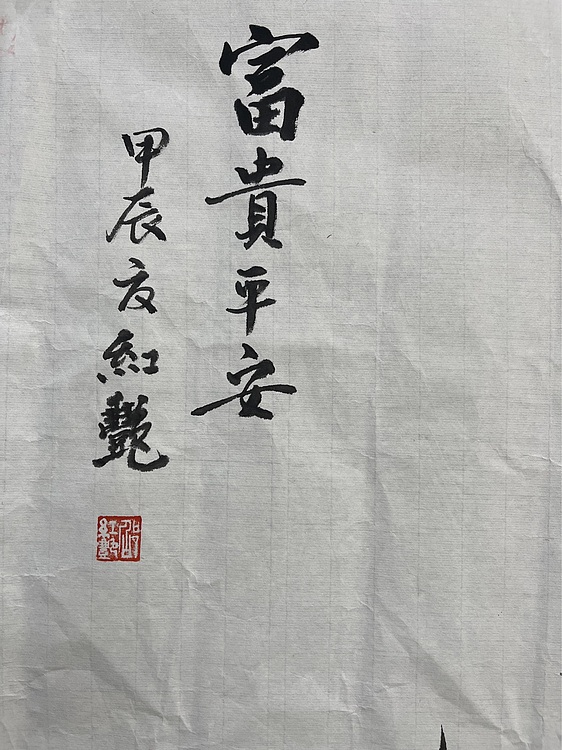 富貴平安
甲辰夏紅艷